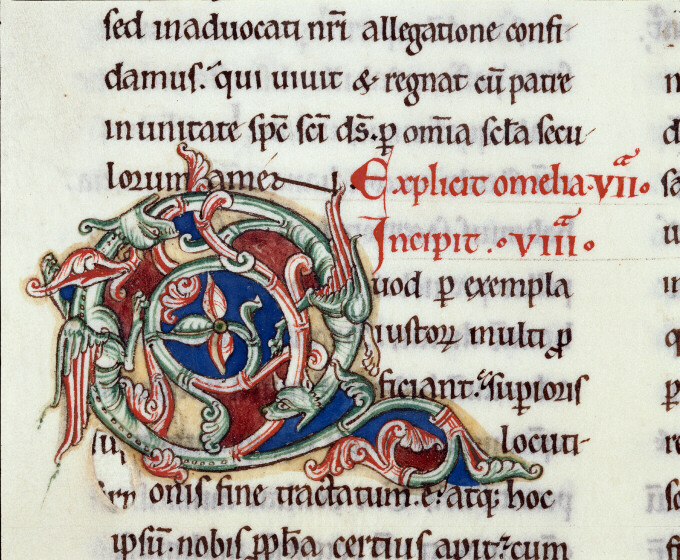 sed inaduocati nr̄i allegatione confi-
damus. qui uiuit & regnat cū patre
in unitate sp̄c sc̄i d̄s. p̱ om̄ia sc̄la secu-
lorum amēɴ. Explicit omelia. vııª.
Incipit. vıııª.
Quod p̱ exempla
iustoꝝ multi ꝓ
ficiant. suꝑioris
locuti-
onis fine tractatum. ē. atq; hoc
ipsū. nobis ꝓph̄a certius aꝑit. cum